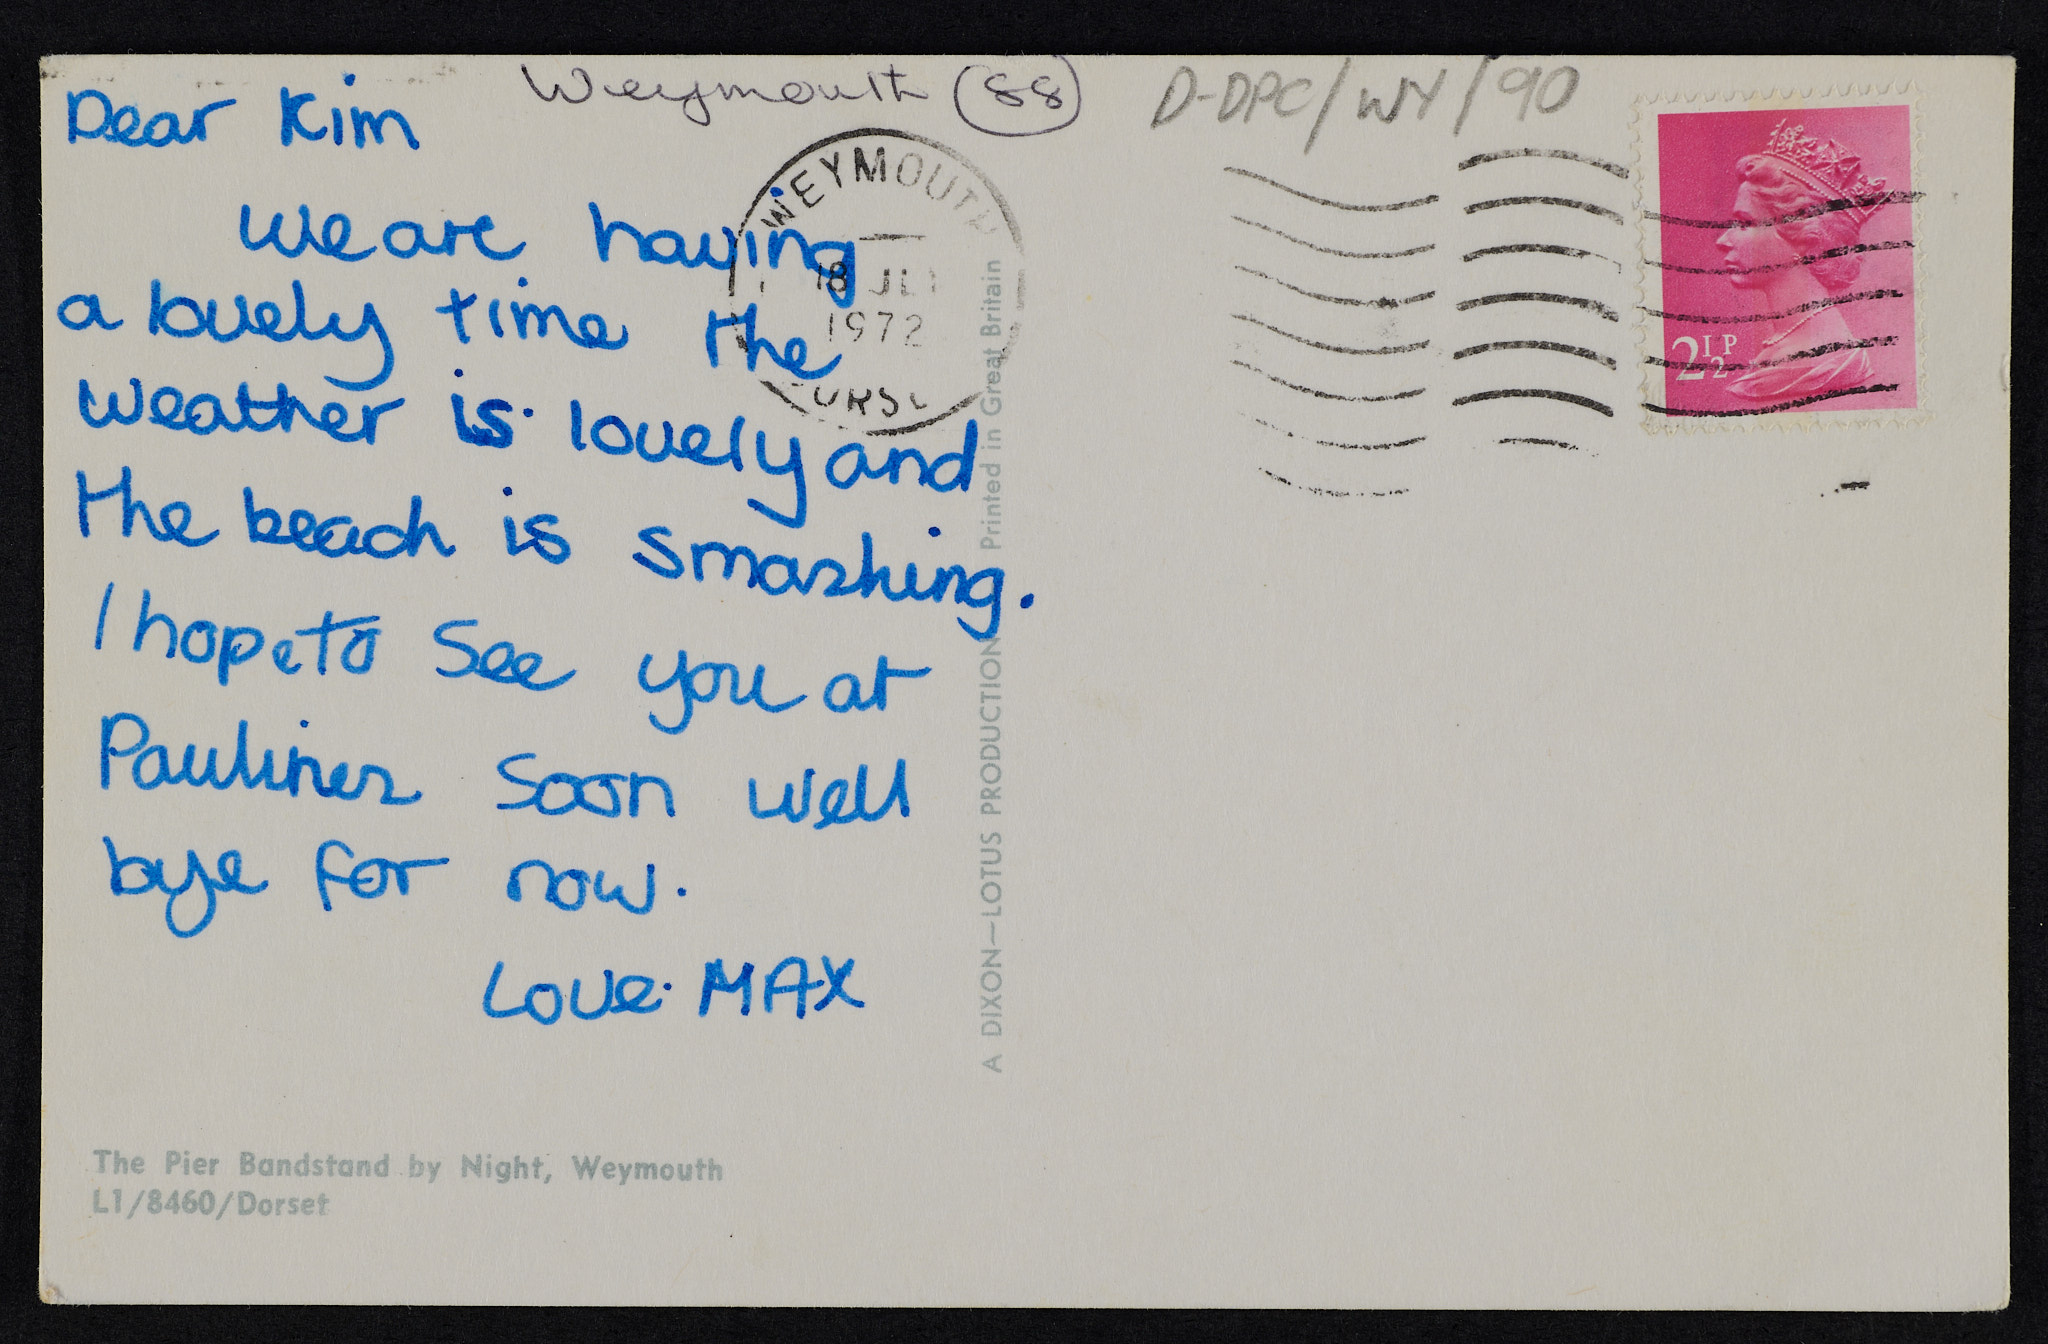 Weymouth (88)
D-DPC/WY/90
Dear Kim
We are having
a lovely time the
weather is lovely and
the beach is smashing.
I hope to see you at
Paulines soon well
bye for now.
Love MAX
WEYMOUTH
18 JL
1972
2½P
A DIXON—LOTUS PRODUCTION Printed in Great Britain
The Pier Bandstand by Night, Weymouth
L1/8460/Dorset